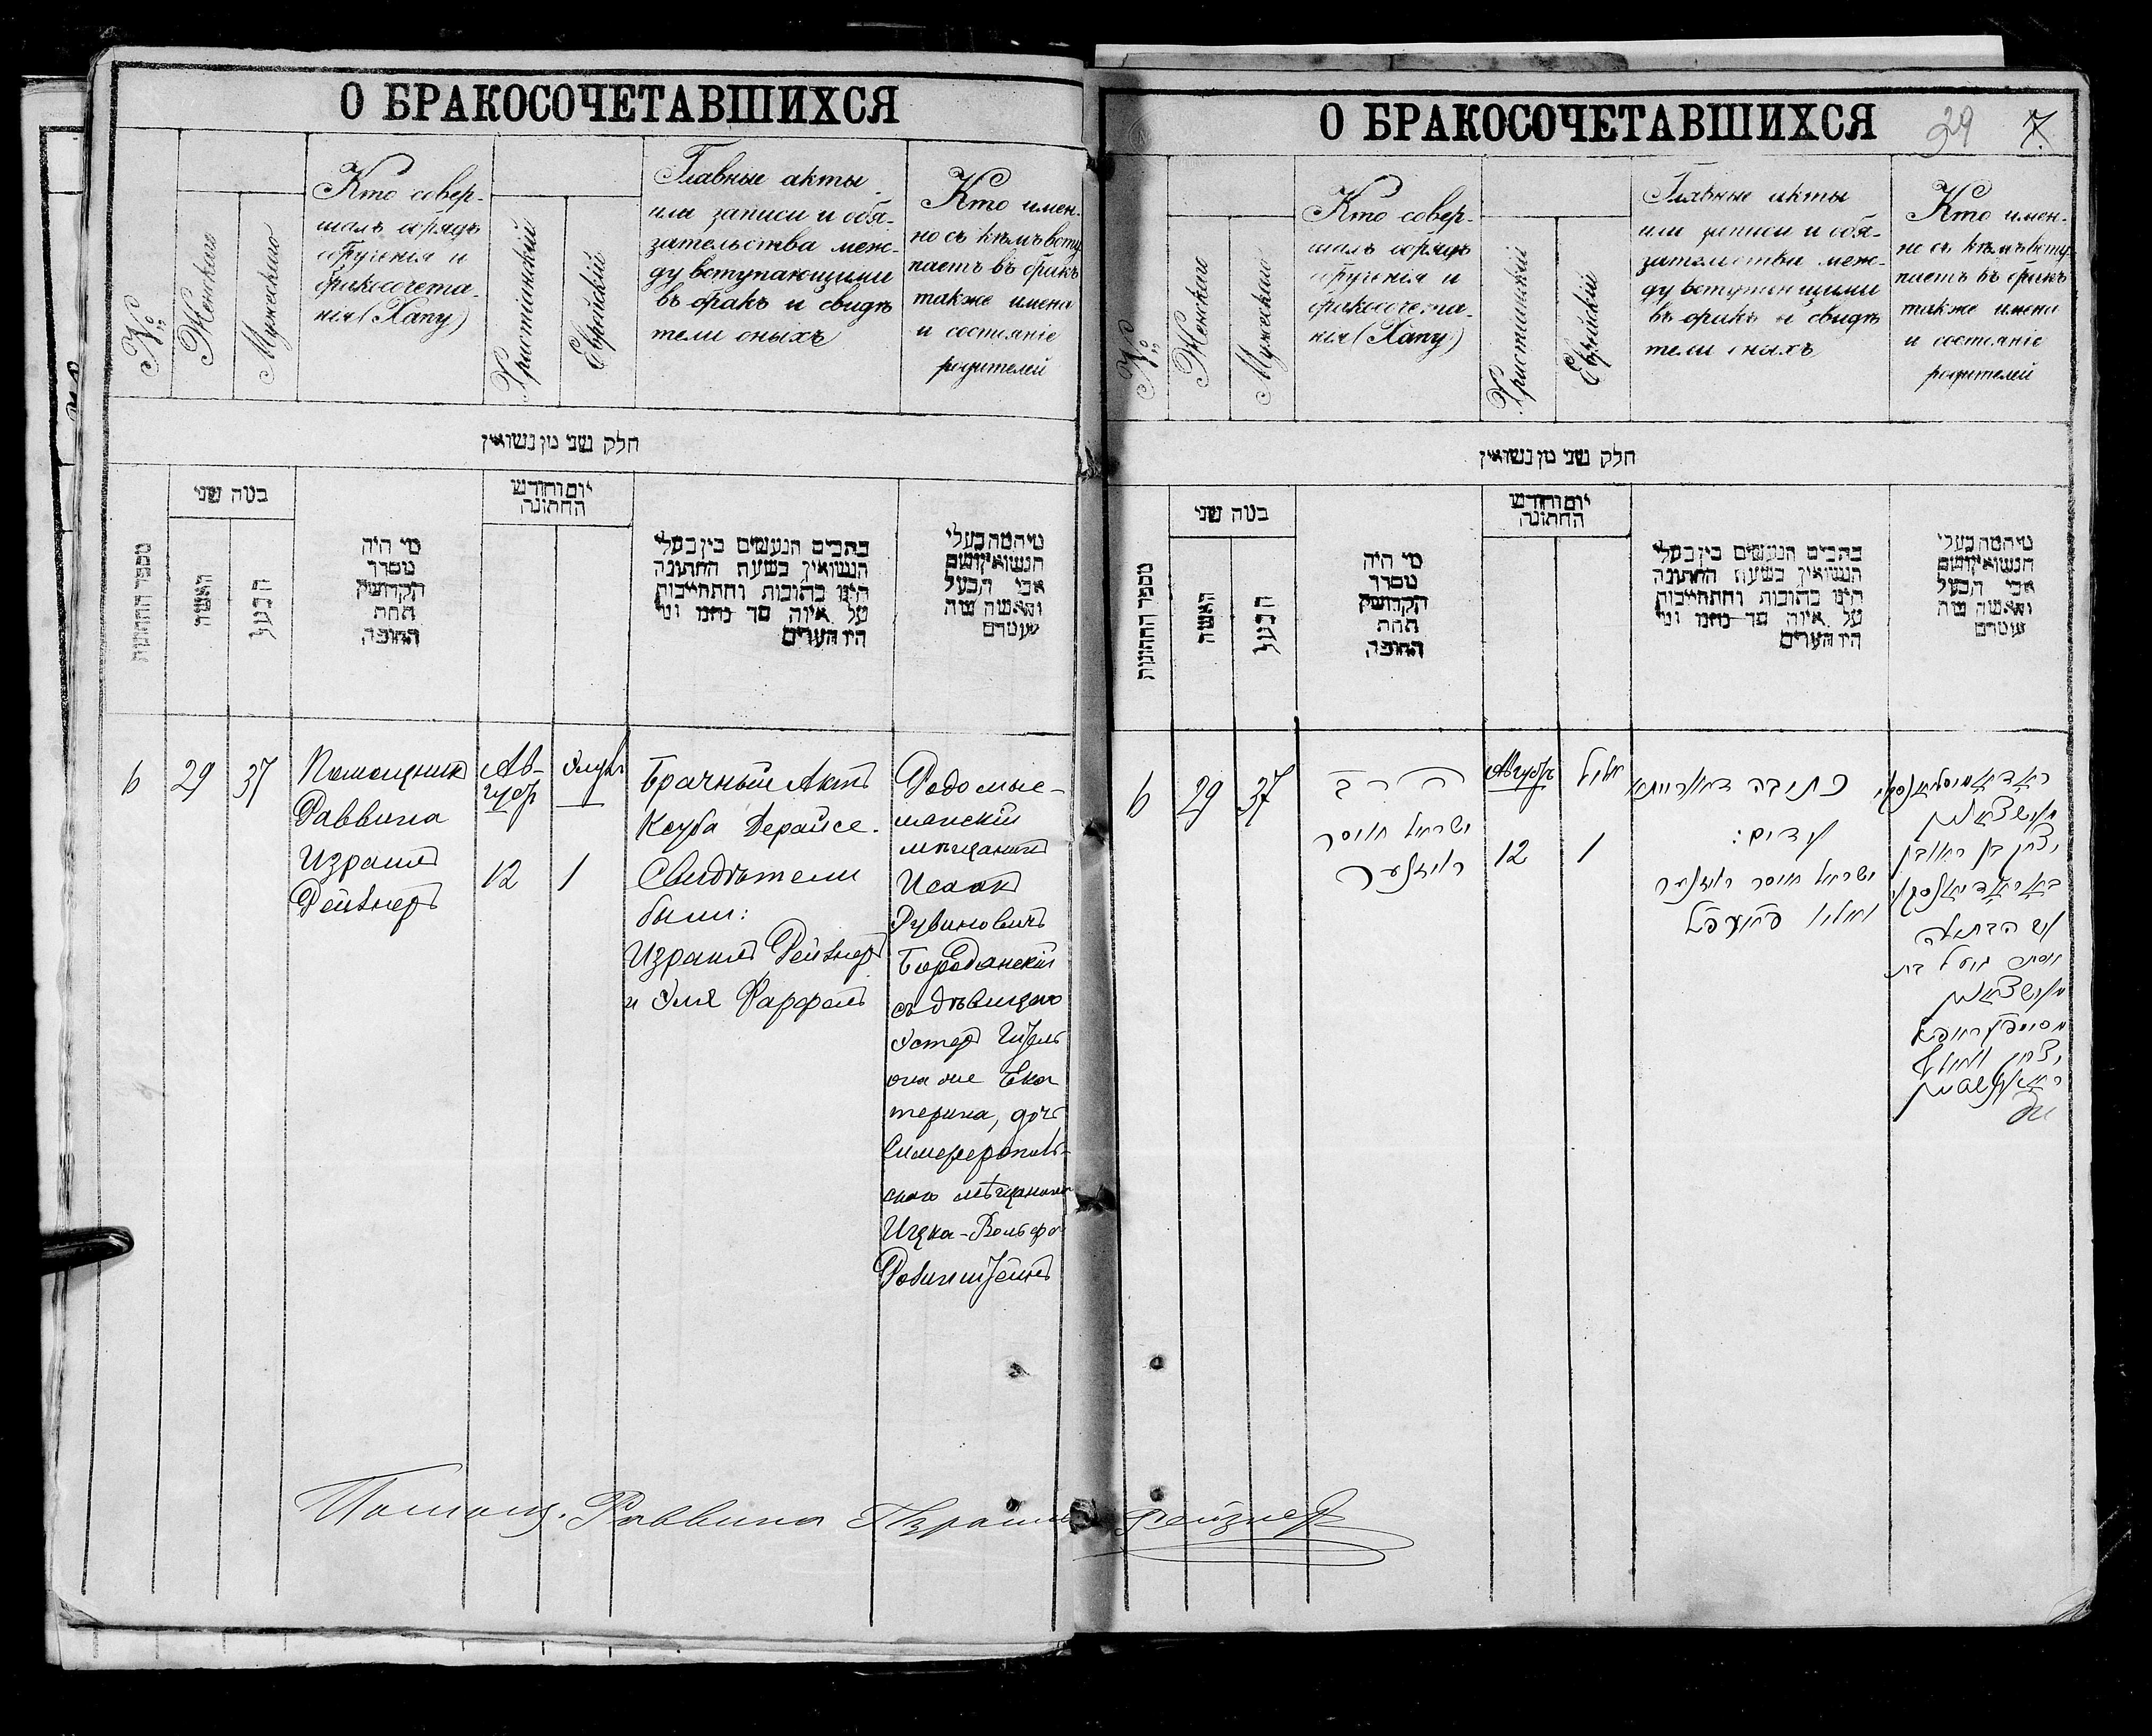 О БРАКОСОЧЕТАВШИХСЯ
№
Женскаго
Мужескаго
Кто совер-
шалъ обрядъ
обрученія и
бракосочета-
нія (Хапу)
Христіанскій
Еврейскій
Главные акты
или записи и обя-
зательства меж-
ду вступающими
въ бракъ и свидѣ
тели оныхъ
Кто имен-
но съ кѣмъ всту
паетъ въ бракъ
также имена
и состояніе
родителей
חלק שני מן נשואין
מספר החתונות
כמה שני
האשה
הבעל
מי היה
מסדר
הקדושין
תחת
החופה
יום וחודש
החתונה
כתבים הנעשים בין בעלי
הנשואין בשעת החתונה
היינו כתובות והתחייבות
על איזה סך נחנו ומי
היו העדים
מי המה בעלי
הנשואין ושם
אבי הבעל
והאשה ומה
מעמדם
6
29
37
Помощникъ
Раввина
Израиль
Рейзнеръ
Ав-
густ
12
Элулъ
1
Брачный Актъ
Ксуба Дерайсе.
Свидѣтели
были:
Израиль Рейзнеръ
и Эля Фарфель
Родомыс-
мѣщанинъ
Исаакъ
Рувиновичъ
Бородянскій
съ дѣвицею
Эстеръ Гитель
она же Ека
терина, дочь
Симферополь-
скаго мѣщанина
Ицка-Вольфа
Робинштейнъ
Помощ. Раввина Израиль Рейзнеръ
О БРАКОСОЧЕТАВШИХСЯ
29
7.
№
Женскаго
Мужескаго
Кто совер-
шалъ обрядъ
обрученія и
бракосочета-
нія (Хапу)
Христіанскій
Еврейскій
Главные акты
или записи и обя-
зательства меж-
ду вступающими
въ бракъ и свидѣ
тели оныхъ
Кто имен-
но съ кѣмъ всту
паетъ въ бракъ
также имена
и состояніе
родителей
חלק שני מן נשואין
מספר החתונות
כמה שני
האשה
הבעל
מי היה
מסדר
הקדושין
תחת
החופה
יום וחודש
החתונה
כתבים הנעשים בין בעלי
הנשואין בשעת החתונה
היינו כתובות והתחייבות
על איזה סך נחנו ומי
היו העדים
מי המה בעלי
הנשואין ושם
אבי הבעל
והאשה ומה
מעמדם
6
29
37
הרב
ישראל
רייזנער
Августъ
12
אלול
1
כתובה דאורייתא
עדים:
ישראל רייזנער
ואליו פארפעל
יצחק בן ראובן
עם הבתולה